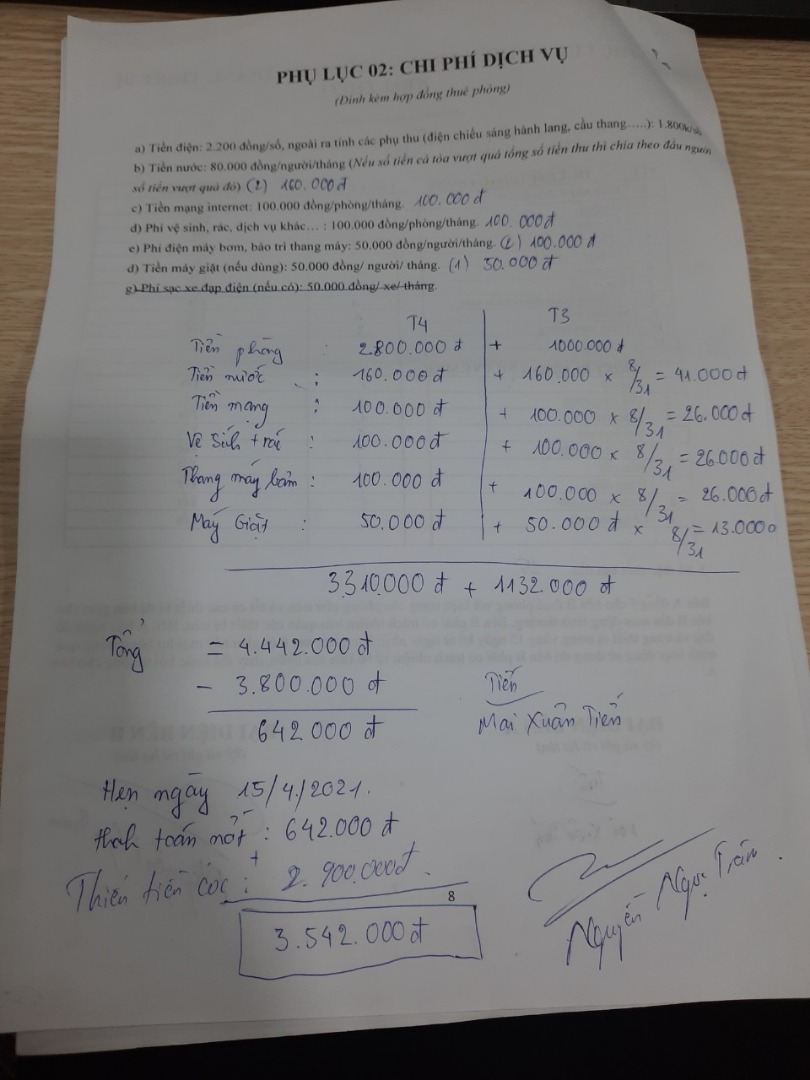 PHỤ LỤC 02: CHI PHÍ DỊCH VỤ
(Đính kèm hợp đồng thuê phòng)
a) Tiền điện: 2.200 đồng/số, ngoài ra tính các phụ thu (điện chiếu sáng hành lang, cầu thang…..): 1.800k/số
b) Tiền nước: 80.000 đồng/người/tháng (Nếu số tiền cả tòa vượt quá tổng số tiền thu thì chia theo đầu người
số tiền vượt quá đó) (2) 160.000 đ
c) Tiền mạng internet: 100.000 đồng/phòng/tháng. 100.000 đ
d) Phí vệ sinh, rác, dịch vụ khác… : 100.000 đồng/phòng/tháng. 100.000đ
e) Phí điện máy bơm, bảo trì thang máy: 50.000 đồng/người/tháng. (2) 100.000 đ
d) Tiền máy giặt (nếu dùng): 50.000 đồng/ người/ tháng. (1) 50.000 đ
g) Phí sạc xe đạp điện (nếu có): 50.000 đồng/ xe/ tháng.
T4 T3
Tiền phòng : 2.800.000 đ + 1000.000 đ
Tiền nước : 160.000 đ + 160.000 × 8/31 = 41.000 đ
Tiền mạng : 100.000đ + 100.000 × 8/31 = 26.000 đ
Vệ sinh + rác : 100.000đ + 100.000 × 8/31 = 26.000đ
Thang máy bơm : 100.000 đ + 100.000 × 8/31 = 26.000đ
Máy Giặt : 50.000 đ + 50.000 đ × 8/31 = 13.000đ
3.310.000 đ + 1132.000 đ
Tổng = 4.442.000 đ
- 3.800.000 đ
642.000 đ
Tiến
Mai Xuân Tiến
Hẹn ngày 15/4/2021.
thah toán nốt : 642.000 đ
+
Thiếu tiền cọc : 2.900.000đ.
8
3.542.000 đ
Nguyễn Ngọc Trâm